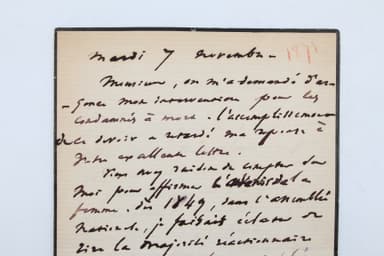 mardi 7 novembre - 1871
Monsieur, on m'a demandé d'ur-
- gence mon intervention pour les
condamnés à mort. l'accomplissement
de ce devoir a retardé ma réponse à
votre excellente lettre.
Vous avez raison de compter sur
moi pour affirmer de la
femme. dès 1849, dans l'assemblée
nationale, je faisais éclater de
rire la majorité réactionnaire